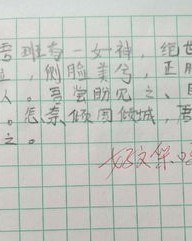 吾班有一女神，绝世
，侧脸美兮，正脸
人。吾尝盼见之、
。怎奈倾国倾城，吾
之。
好文采